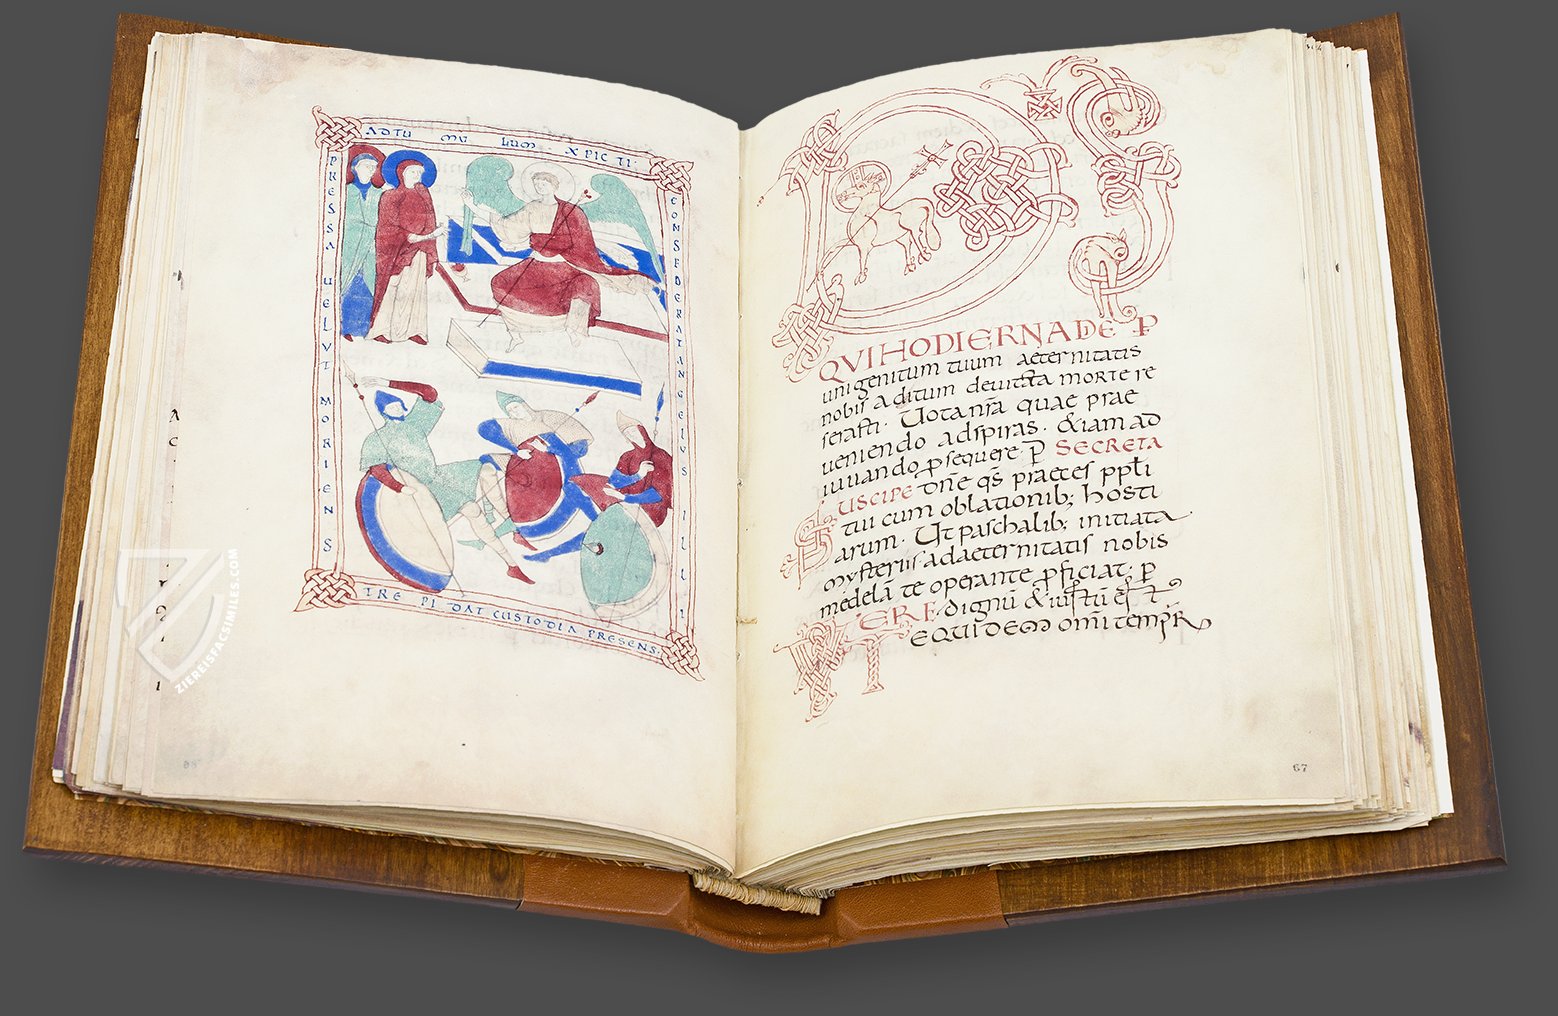 AD TU MU LUM XPICTI
PRESSA UELUT MORIENS
CONSIDERAT ANGELUS ILLI
TRE PIDAT CUSTODIA PRESENS.
DS
QVI HODIERNA DIE P
unigenitum tuum aeternitatis
nobis aditum deuicta morte re
serasti. Uota nr̄a quae prae
ueniendo adspiras. &iam ad
iuuando ꝓsequere. P̄ SECRETA
SUSCIPE dn̄e qs̄ praeces ppl̄i
tui cum oblationib; hosti
arum. Ut paschalib; initiata
mysteriis ad aeternitatis nobis
medelā te operante ꝓficiat. p̄
VERE dignū & iustū est
TE QUIDEM omi tempr̄
67
ZIEREISFACSIMILES.COM